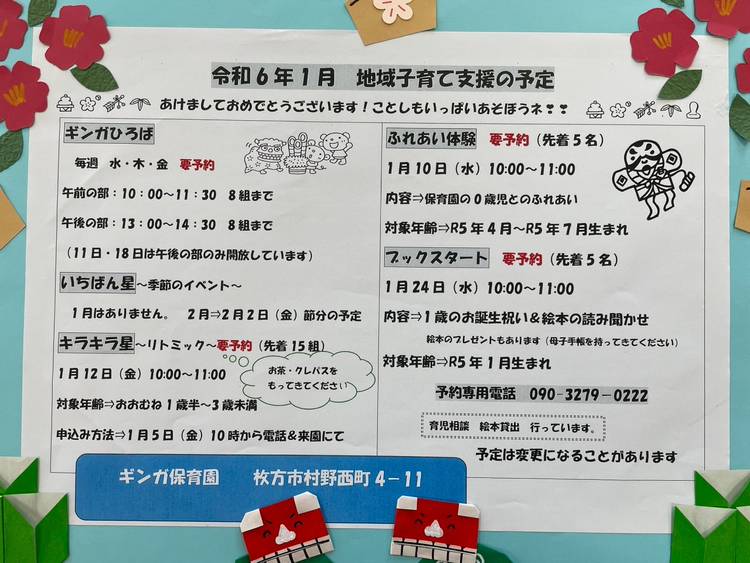 令和6年1月 地域子育て支援の予定
あけましておめでとうございます！ことしもいっぱいあそぼうネ❣❣
ギンガひろば
毎週 水・木・金 要予約
午前の部：10：00～11：30 8組まで
午後の部：13：00～14：30 8組まで
（11日・18日は午後の部のみ開放しています）
いちばん星～季節のイベント～
1月はありません。 2月⇒2月2日（金）節分の予定
キラキラ星～リトミック～要予約（先着15組）
1月12日（金）10:00～11:00
お茶・クレパスを
もってきてください
対象年齢⇒おおむね1歳半～3歳未満
申込み方法⇒1月5日（金）10時から電話＆来園にて
ふれあい体験 要予約（先着5名）
1月10日（水）10:00～11:00
内容⇒保育園の0歳児とのふれあい
対象年齢⇒R5年4月～R5年7月生まれ
ブックスタート 要予約（先着5名）
1月24日（水）10:00～11:00
内容⇒1歳のお誕生祝い＆絵本の読み聞かせ
絵本のプレゼントもあります（母子手帳を持ってきてください）
対象年齢⇒R5年1月生まれ
予約専用電話 090-3279-0222
育児相談 絵本貸出 行っています。
予定は変更になることがあります
ギンガ保育園 枚方市村野西町4－11